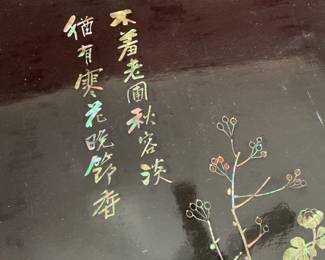 不羞老圃秋容淡
猶有寒花晚節香